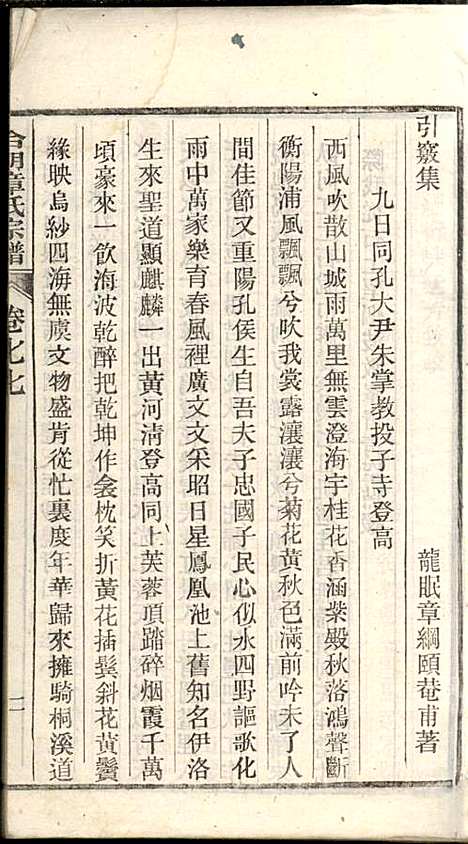 引竅集
龍眠章綱頤菴甫著
九日同孔大尹朱掌教投子寺登高
西風吹散山城雨萬里無雲澄海宇桂花香涵紫殿秋落鴻聲斷
衡陽浦風飄飄兮吹我裳露瀼瀼兮菊花黃秋色滿前吟未了人
間佳節又重陽孔侯生自吾夫子忠國子民心似水四野謳歌化
雨中萬家樂育春風裡廣文文采昭日星鳳凰池上舊知名伊洛
生來聖道顯麒麟一出黃河淸登高同上芙蓉頂踏碎烟霞千萬
頃豪來一飮海波乾醉把乾坤作衾枕笑折黃花插鬂斜花黃鬢
緣映烏紗四海無虞文物盛肯從忙裏度年華歸來擁騎桐溪道
合明章氏宗譜
卷之七
二